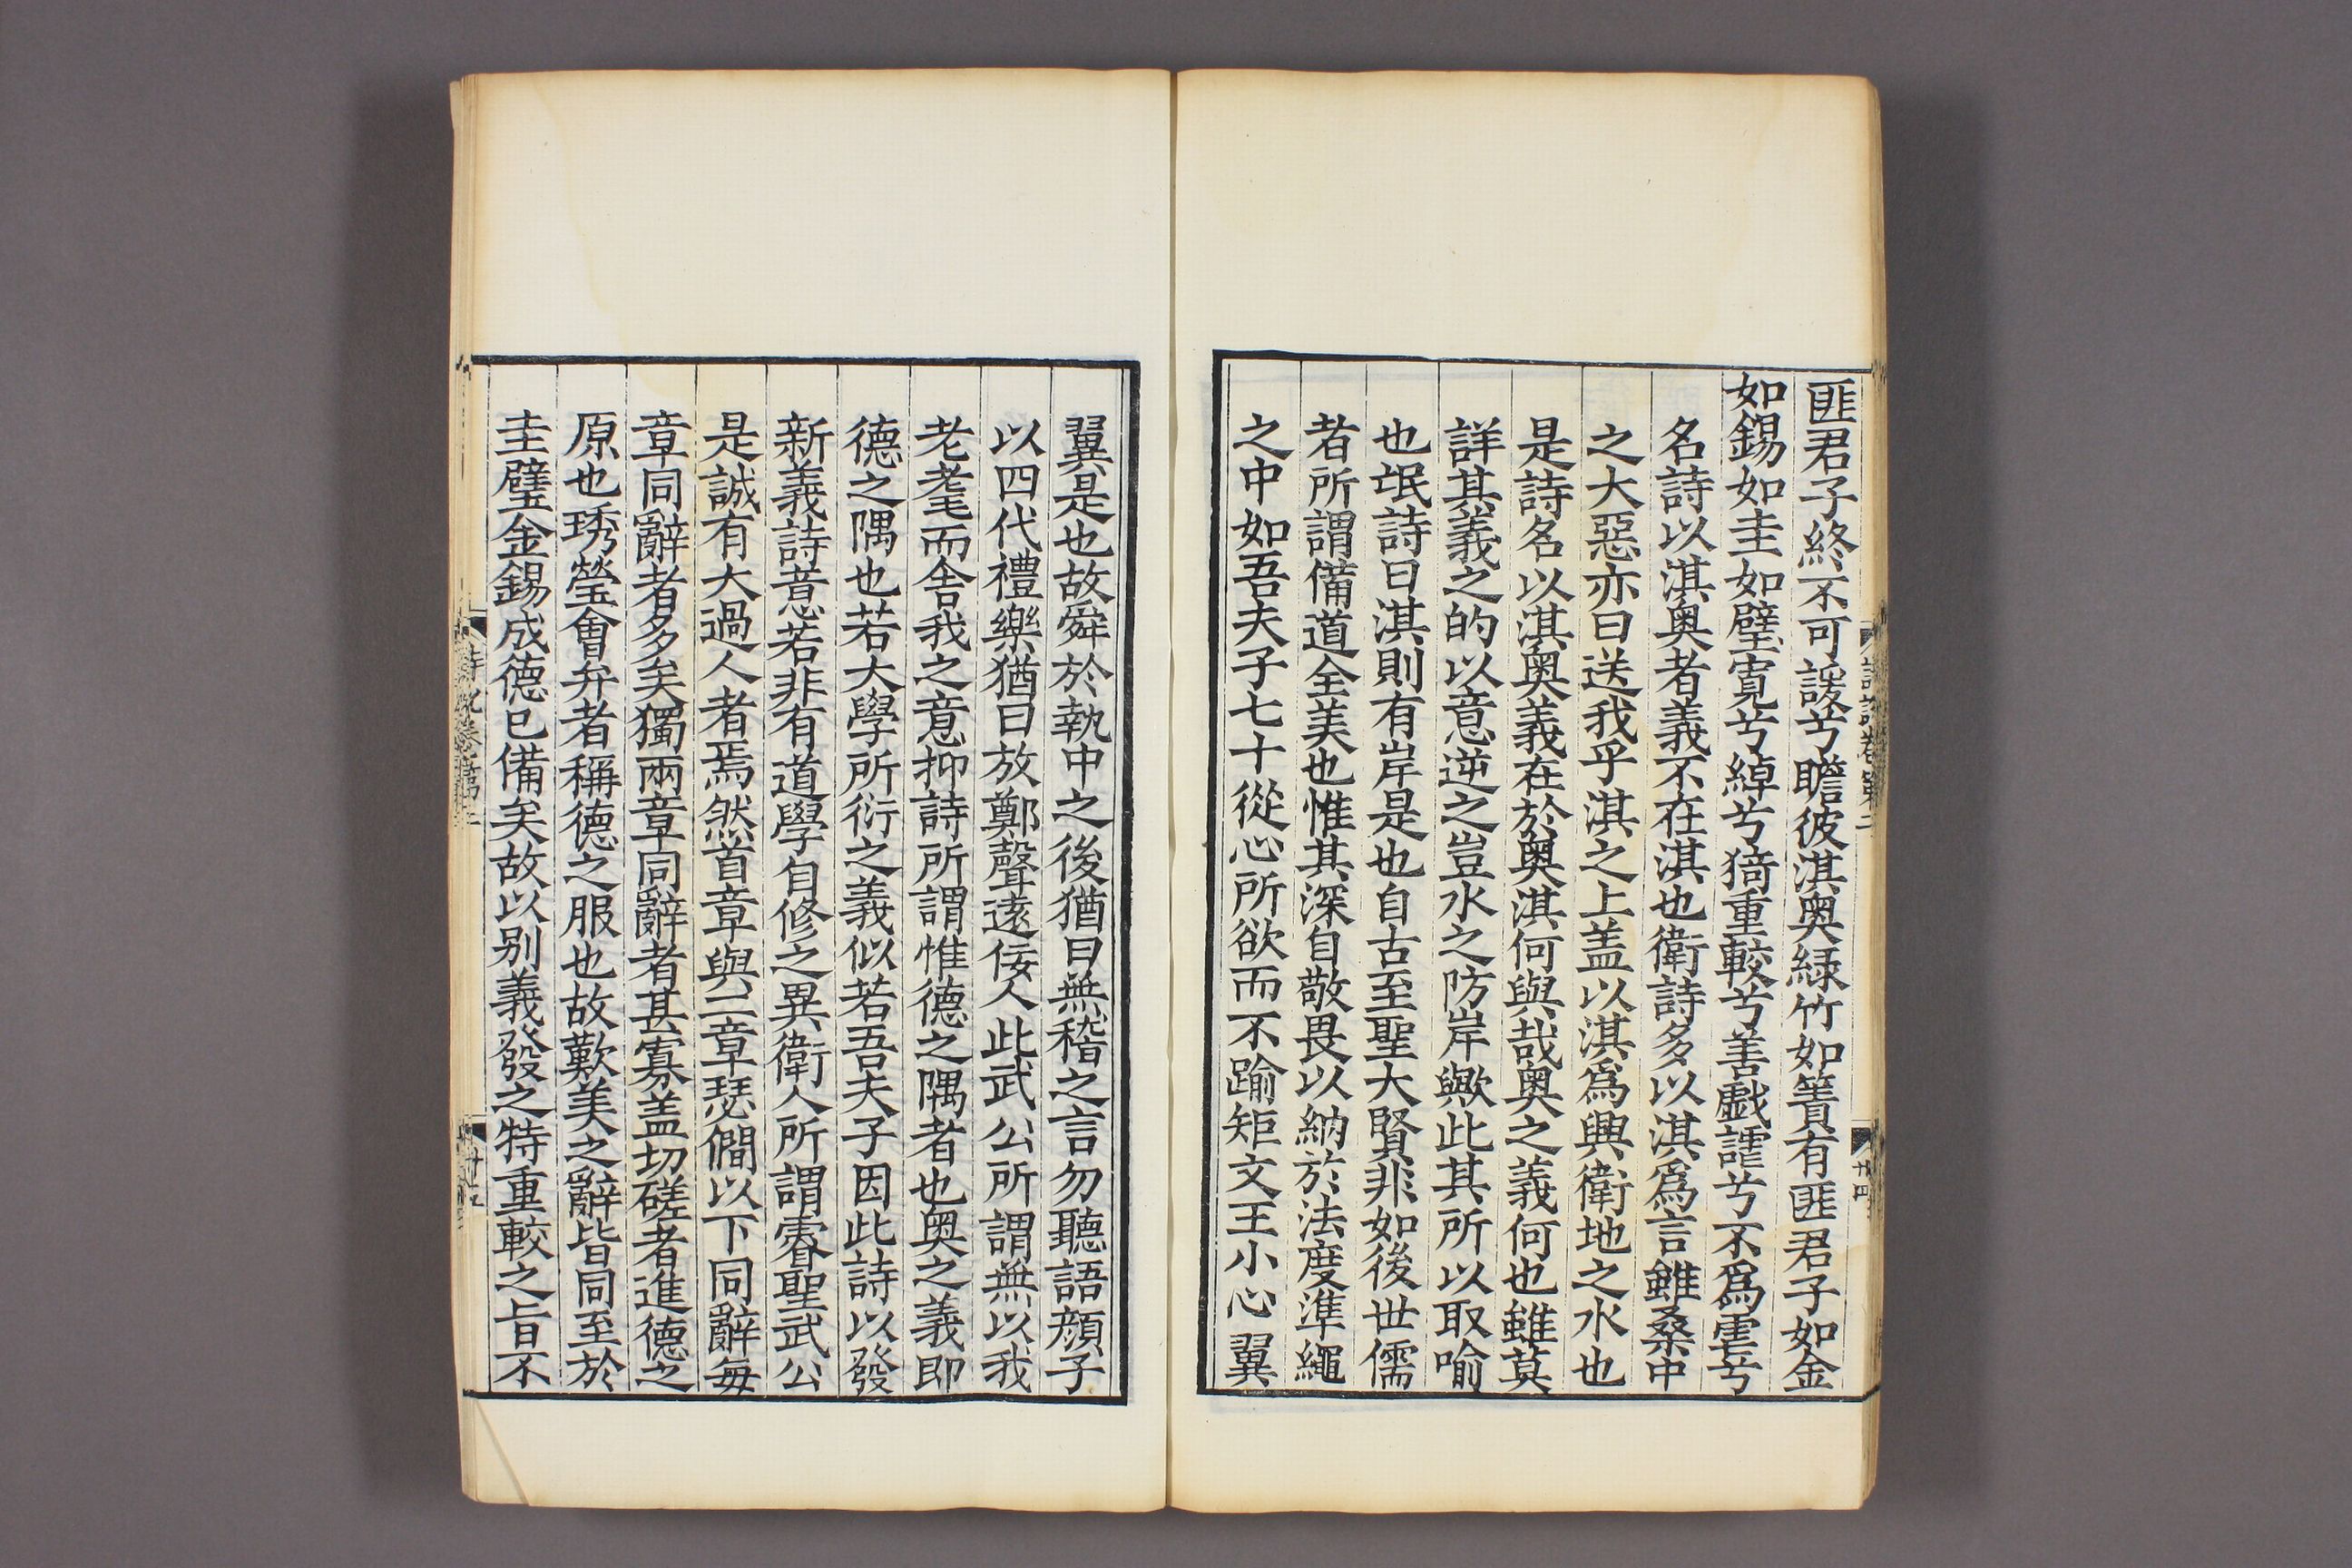 匪君子終不可諼兮瞻彼淇奥緑竹如簀有匪君子如金
如錫如圭如璧寛兮綽兮猗重較兮善戯謔兮不爲虐兮
名詩以淇奥者義不在淇也衛詩多以淇爲言雖桑中
之大惡亦曰送我乎淇之上盖以淇爲興衛地之水也
是詩名以淇奥義在於奥淇何與哉奥之義何也雖莫
詳其義之的以意逆之豈水之防岸歟此其所以取喻
也氓詩曰淇則有岸是也自古至聖大賢非如後世儒
者所謂備道全美也惟其深自敬畏以納於法度準繩
之中如吾夫子七十從心所欲而不踰矩文王小心翼
詩說卷第二
廿四
翼是也故舜於執中之後猶曰無稽之言勿聽語顔子
以四代禮樂猶曰放鄭聲遠佞人此武公所謂無以我
老耄而舍我之意抑詩所謂惟德之隅者也奥之義即
德之隅也若大學所衍之義似若吾夫子因此詩以發
新義詩意若非有道學自修之異衛人所謂睿聖武公
是誠有大過人者焉然首章與二章瑟僩以下同辭每
章同辭者多矣獨兩章同辭者甚寡盖切磋者進德之
原也琇瑩會弁者稱德之服也故歎美之辭皆同至於
圭璧金錫成德已備矣故以别義發之特重較之旨不
詩說卷第二
廿五